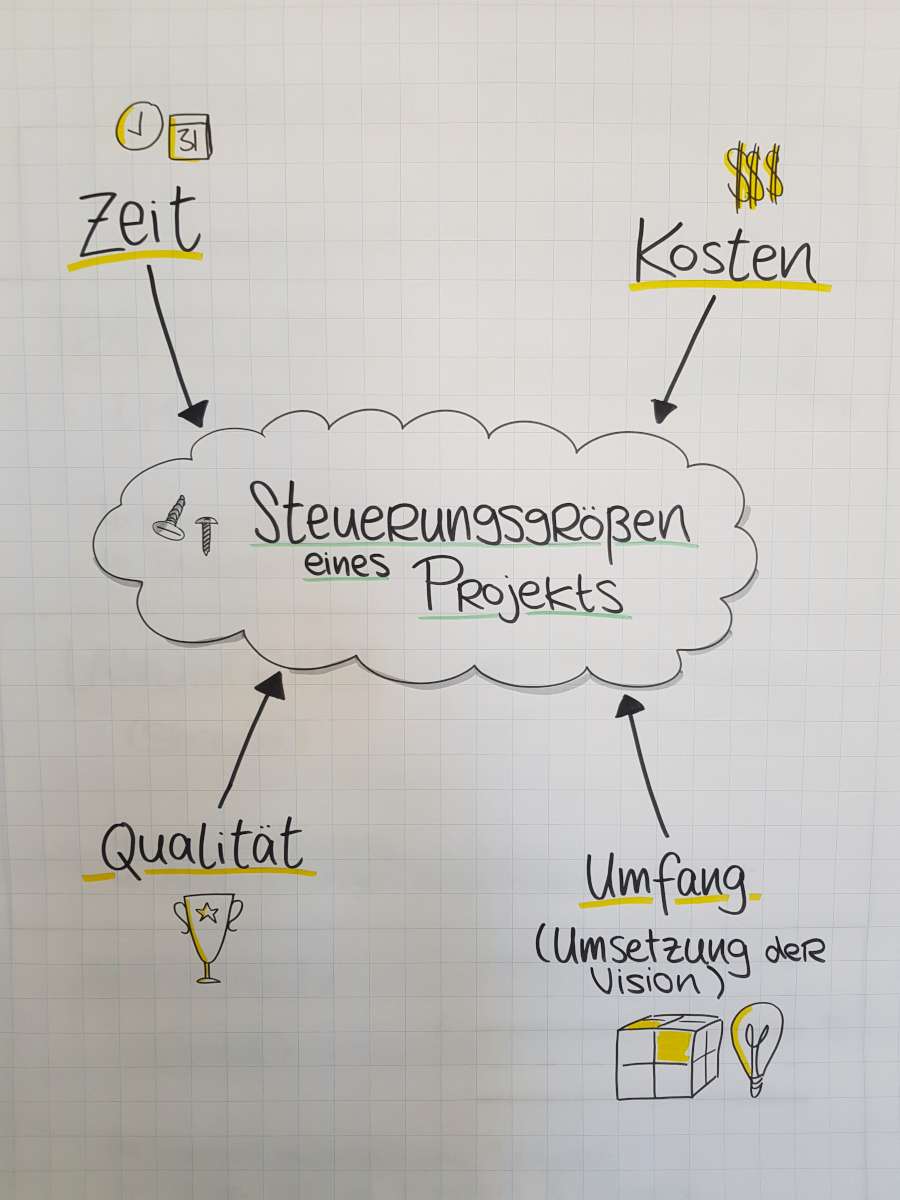 31
$$$
Zeit
Kosten
Steuerungsgrößen
eines Projekts
Qualität
Umfang
(Umsetzung der
Vision)